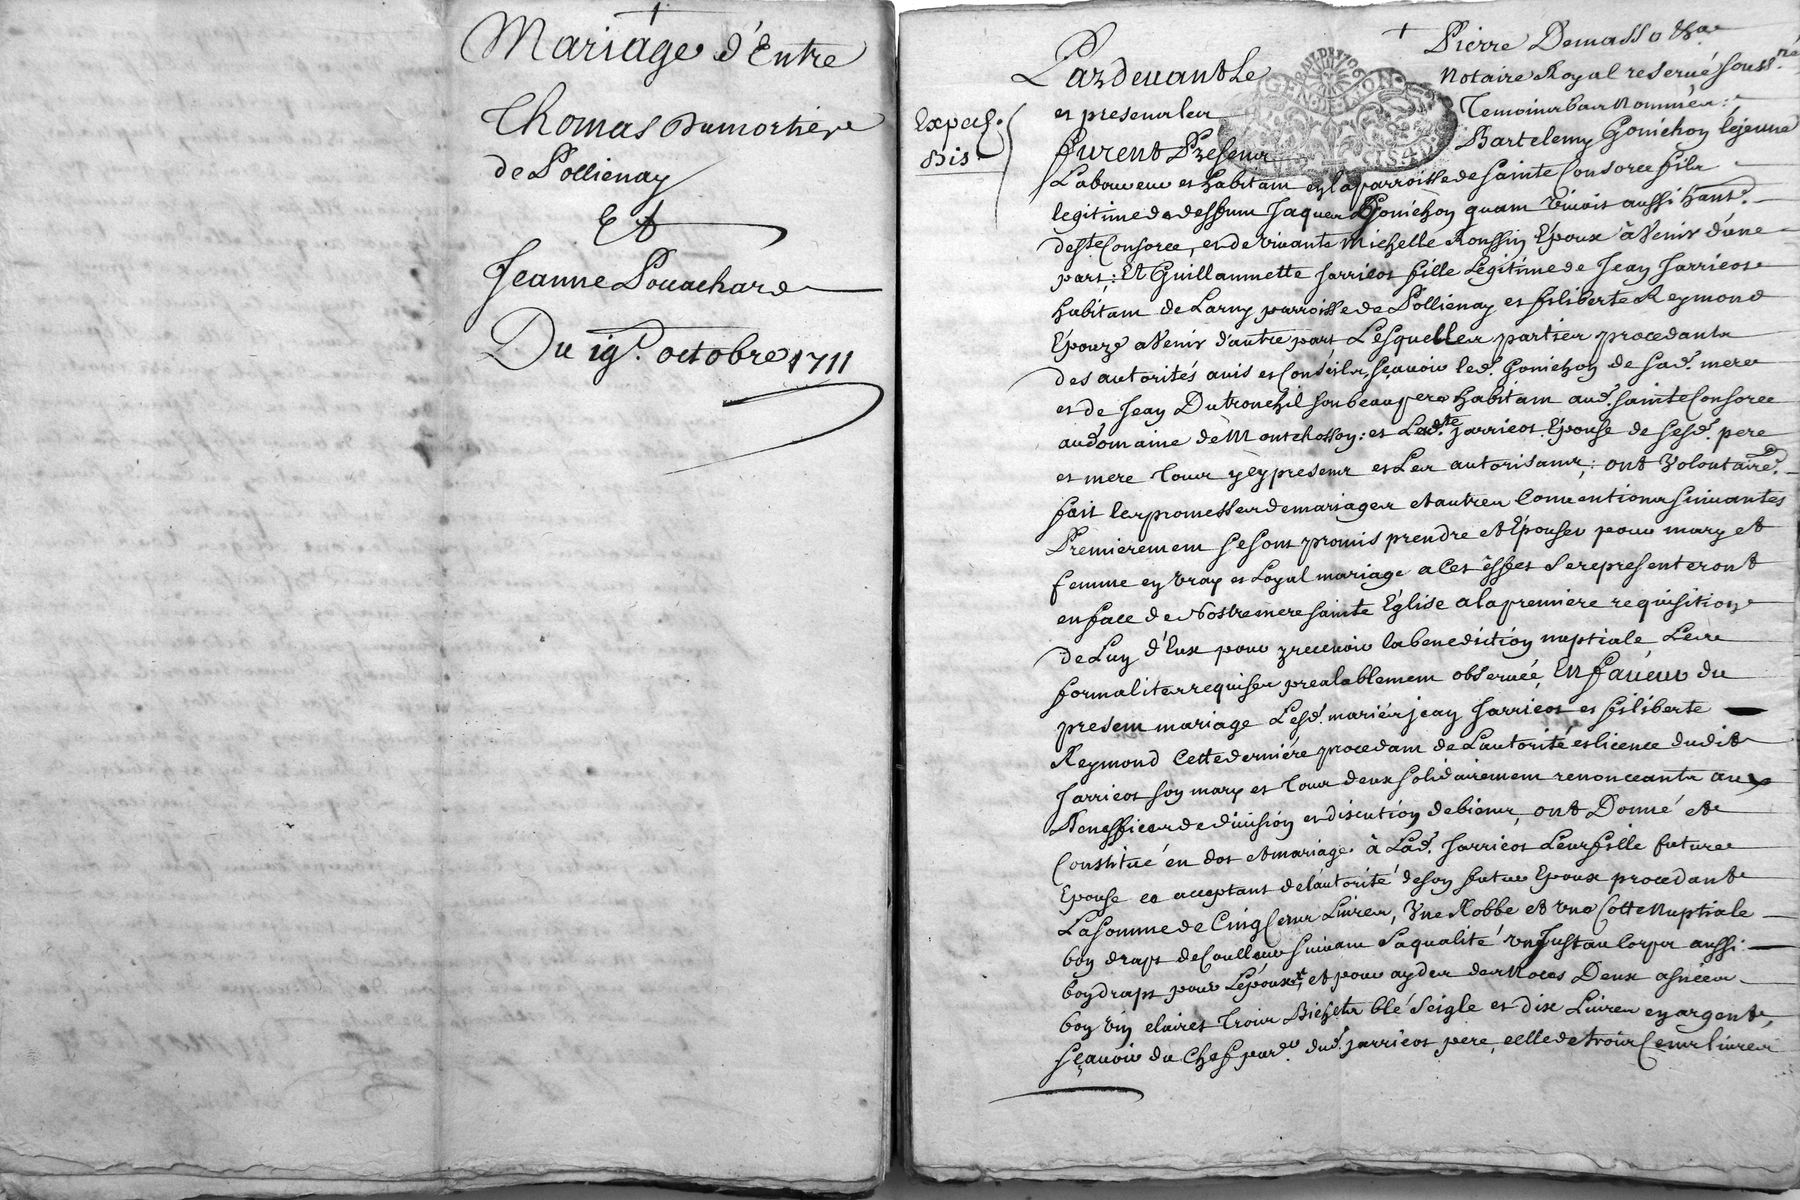 Mariage d'Entre
Thomas Dumortiere
de Pollienay
Et
Jeanne Pouachard
Du 19e. octobre 1711
Pardevant Le Pierre Demasso
Notaire Royal reservé souss.né
et presents les Temoins bas Nommés:
Exped.
bis
furent Presents Bartelemy Gonichon lejeune
Laboureur et habitant en la parroisse de Sainte Consorce fils
legitime de deffunt Jaques Gonichon quand vivoit aussi habt.
de ste Consorce, et de vivante Michelle Roussin Epoux à Venir d'une
part: Et Guillaumette Jarricot fille Legitime de Jean Jarricot
habitant de Larny parroisse de Pollienay et filiberte Reymond
Epouze a Venir d'autre part Lesquelles parties procedants
des autorités avis et Conseils, sçavoir led. Gonichon de sad. mere
et de Jean Dutronchil son beaupere habitant aud. Sainte Consorce
au domaine de Montchosson: et Lad.te Jarricot Epouse de sesd. pere
et mere tous icy presents et Les autorisants; ont Volontaire.
fait les promesses de mariages et autres Conventions suivantes
Premierement se sont promis prendre et Epouser pour mary et
femme en vray et Loyal mariage a Cet effet Se representeront
en face de Nostre mere sainte Eglise a la premiere requisition
de Luy d'Eux pour y recevoir la benediction nuptiale Les
formalites requises prealablement observée, En faveur du
present mariage Lesd. mariés jean Jarricot et filiberte
Reymond Cette derniére procedant de L'autorité et licence dudit
Jarricot son mary et tous deux solidairement renonceants aux
Beneffices de division et discution de biens, ont Donné et
Constitué en dot et mariage à Lad. Jarricot Leur fille future
Epouse ce acceptant de l'autorité de son futur Epoux procedant
La somme de Cinq Cents Livres, Une Robbe et une Cotte Nuptiale
bon drap de Coulleur suivant Sa qualité un Justaucorps aussi
bon drap pour L'époux, et pour ayder des Noces Deux asnées
bon vin clairet trois Bichets blé Seigle et dix Livres en argent,
sçavoir du Chef par.er dud. jarricot pere, celle de trois Cents livres